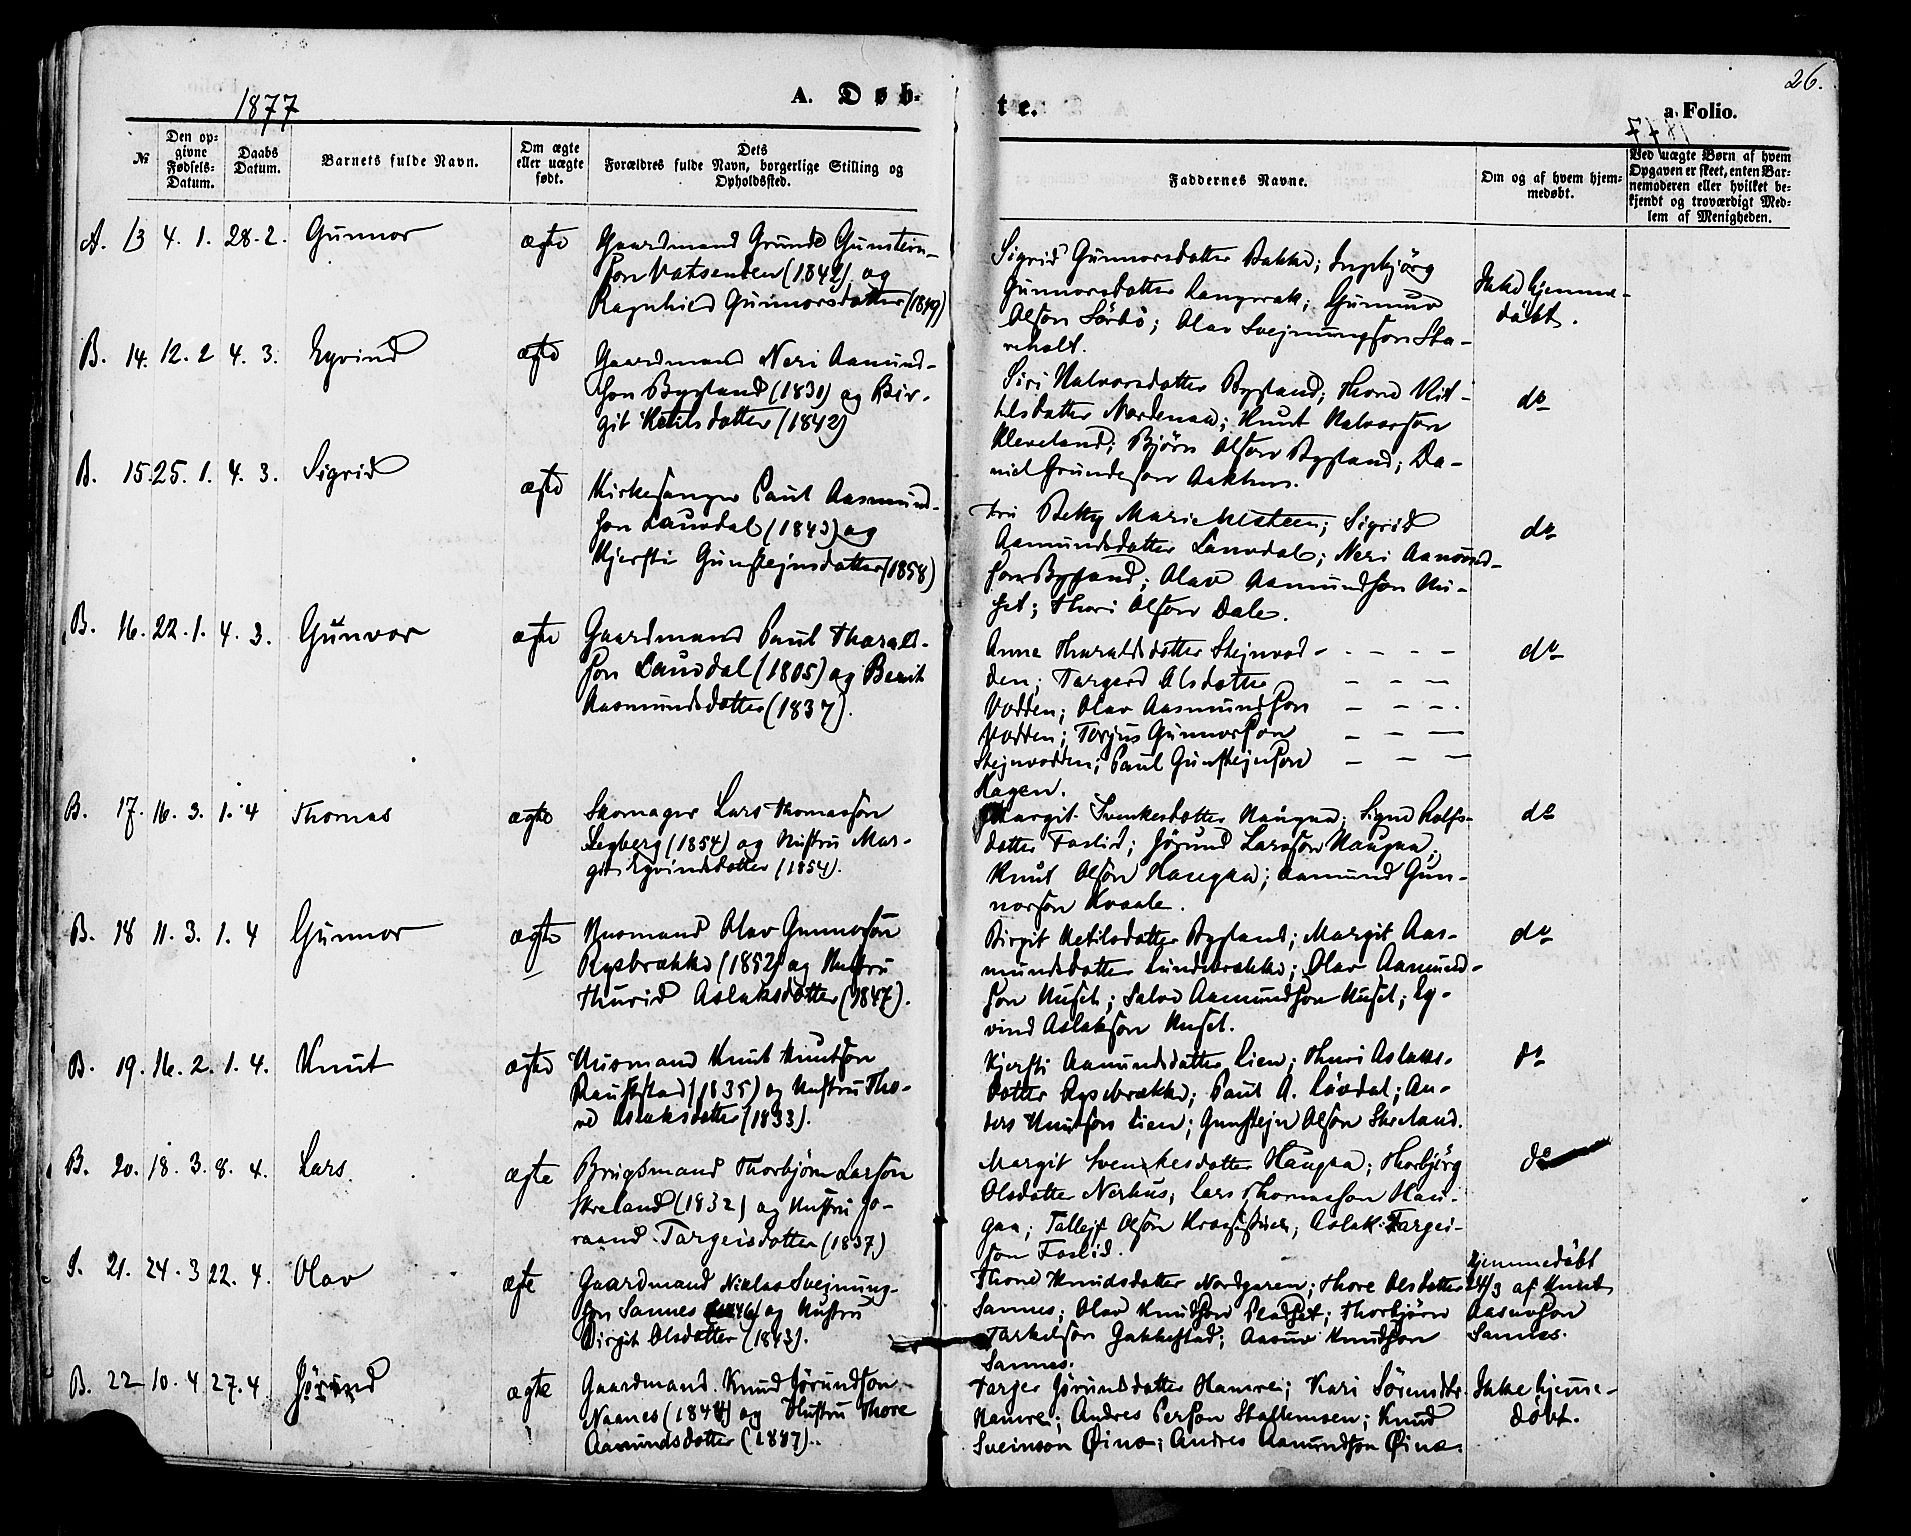 26.
1877
A. Døb-
te.
a. Folio.
1877
№
Den op-
givne
Fødsels-
Datum.
Daabs
Datum.
Barnets fulde Navn.
Om ægte
eller uægte
født.
Dets
Forældres fulde Navn, borgerlige Stilling og
Opholdssted.
Faddernes Navne.
Om og af hvem hjem-
medøbt.
Ved uægte Børn af hvem
Opgaven er skeet, enten Bar-
nemoderen eller hvilket be-
kjendt og troværdigt Med-
lem af Menigheden.
A. 13 4. 1. 28. 2. Gunnor ægte
Gaardmand Grunde Gunstein-
son Vatsenden (1842) og
Ragnhild Gunnorsdatter (1849)
Sigrid Gunnorsdatter Bakke; Ingebjörg
Gunnorsdatter Langerak; Gunnuv
Olson Sördö; Olav Svejnungson Sta-
vehalt.
Ikke hjemme-
döbt.
B. 14. 12. 2 4. 3. Eyvind ægte
Gaardmand Neri Aamund-
son Bygland (1831) og Bir-
git Ketilsdatter (1842)
Siri Halvorsdatter Bygland; Thone Kit-
tilsdatter Nordenaa; Knut Halvorson
Kleveland; Björn Olson Bygland; Da-
niel Grundeson Aakhus.
do
B. 15. 25. 1. 4. 3. Sigrid ægte
Kirkesanger Paul Aasmund-
son Lauvdal (1843) og
Kjersti Gunstejnsdatter (1858)
Fru Betty Marie Alsteen; Sigrid
Aamundsdatter Lauvdal; Neri Aamund-
son Bygland; Olav Aamundson Hu-
set; Thori Olson Dale.
do
B. 16. 22. 1. 4. 3. Gunvor ægte
Gaardmand Paul Tharald-
son Lauvdal (1805) og Berit
Aasmundsdatter (1837).
Anne Tharaldsdatter Stejnvod-
den; Targerd Olsdatter
Vodden; Olav Aasmundson
Vodden; Torjus Gunnorson
Stejnvodden; Paul Gunstejnson
Hagen.
do
B. 17. 16. 3. 1. 4 Thomas ægte
Skomager Lars Thomasson
Legberg (1854) og Hustru Mar-
git Eyvindsdatter (1854).
Margit Svenkesdatter Haugaa; Signe Rolfs-
datter Faslid; Jörund Larsson Haugaa.
Knut Olson Haugaa; Aamund Gun-
norson Kvaale.
do
B. 18 11. 3. 1. 4 Gunnor ægte
Husmand Olav Gunnorson
Rysbrække (1852) og Hustru
Thurid Aslaksdatter (1847).
Birgit Ketilsdatter Bygland; Margit Aas-
mundsdatter Lundebrække; Olav Aamund-
son Huset; Salve Aamundson Huset; Ey-
vind Aslakson Huset.
do
B. 19. 16. 2. 1. 4. Knut ægte
Husmand Knut Knutson
Raustad (1835) og Hustru Tho-
ne Aslaksdatter (1833).
Kjersti Aamundsdatter Lien; Thuri Aslaks-
datter Rysebrække; Paul A. Lövdal; An-
ders Knutson Lien; Gunstejn Olson Skreland.
do
B. 20. 18. 3. 8. 4. Lars. ægte
Brugsmand Thorbjörn Larson
Skreland (1832) og Hustru Jo-
raand Targeisdatter (1837)
Margit Svenkesdatter Haugaa; Thorbjörg
Olsdatter Nerhus; Lars Thomasson Hau-
gaa; Tallejf Olson; Aslak Targei-
son Faslid.
do
S. 21. 24. 3 22. 4. Olav ægte
Gaardmand Niklas Svejnung-
son Sannes (1846) og Hustru
Birgit Olsdatter (1843).
Thone Knudsdatter Nordgaren; Thore Olsdatter
Sannes; Olav Knudson Pladset; Thorbjörn
Tarkelson Jakkestad; Aasuv Knudson
Sannes.
Hjemmedöbt
24/3 af Knut
Aasuvson
Sannes.
B. 22 10. 4 27. 4. Jörund ægte
Gaardmand Knud Jörundson
Naanes (1844) og Hustru Thore
Aamundsdatter (1847).
Targer Jörundsdatter Hamre; Kari Sörensdtr.
Hamre; Andres Person Stallemoen; Knud
Sveinson Øinæ; Andres Aamundson Øinæ.
Ikke hjemme-
döbt.